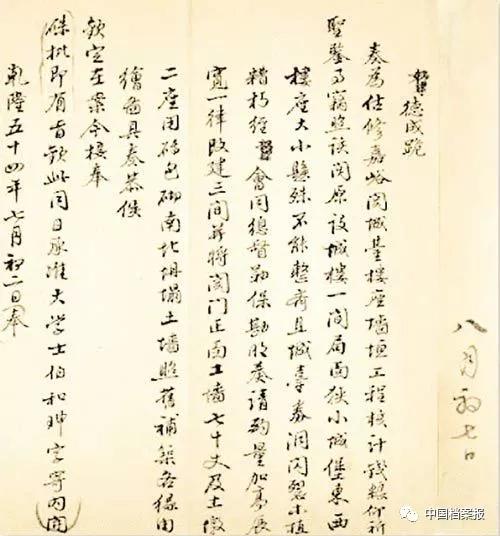 八月初七日
奴才德成跪
奏為估修嘉峪関城臺樓座墻垣工程核計錢糧仰祈
聖鑒事竊照該関原設城樓一間局面狹小城堡東西
樓座大小懸殊不能整齊且城臺券洞閃裂木植
糟朽經奴才會同總督勒保勘明奏請酌量加高展
寬一律改建三間并將関門正面土墻七十丈及土墩
二座用磚包砌南北坍塌土墻照舊補築各緣由
繪圖具奏恭候
欽定在案今接奉
硃批即有旨欽此同日承准大学士伯和珅字寄內開
乾隆五十四年七月初二日奉
中国档案报